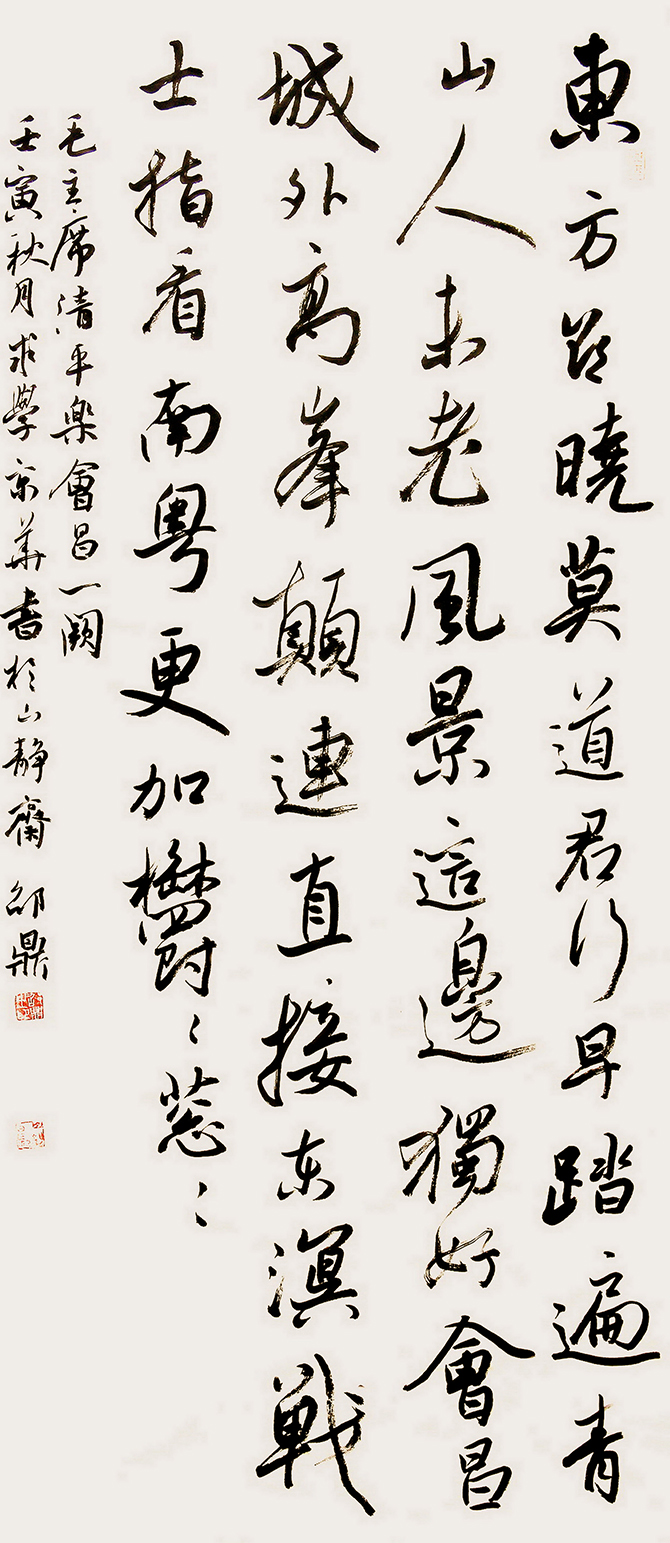 東方欲曉莫道君行早踏遍青
山人未老風景這邊獨好會昌
城外高峯顛連直接东溟戰
士指看南粤更加鬱〻葱〻
毛主席清平樂會昌一闋
壬寅秋月求學京華書於山静齋 邵鼎